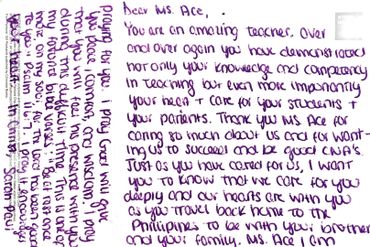 Dear Ms. Ace,
You are an amazing teacher. Over
and over again you have demonstrated
not only your knowledge and competency
in teaching but even more importantly
your heart + care for your students +
your patients. Thank you Ms Ace for
caring so much about us and for want-
ing us to succeed and be good CNA's.
Just as you have cared for us, I want
you to know that we care for you
deeply and our hearts are with you
as you travel back home to the
Phillipines to be with your brother
and your family. Ms. Ace I am
praying for you. I pray God will give
you peace, comfort, and wisdom. I pray
that you will feel His presence with you
during this difficult time. This is one of
my favorite bible verses: "Be at rest once
more, oh my soul, for the Lord has been good
to you." Psalm 116:7. I pray it encourages
your heart. In Christ, Sarah